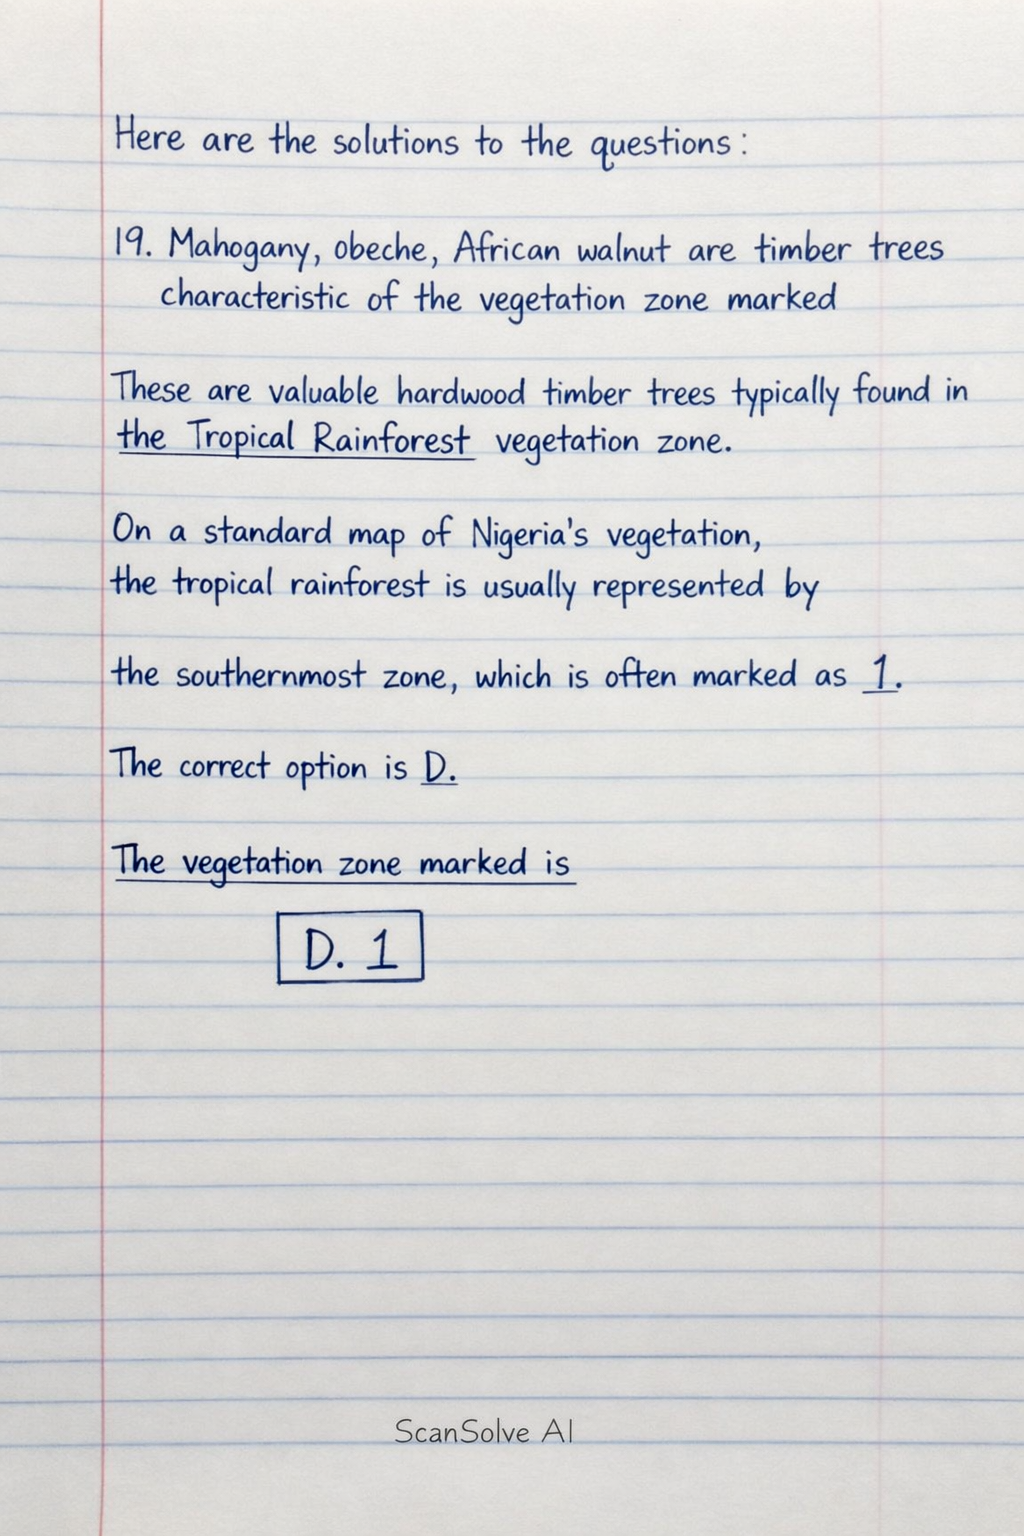 Here are the solutions to the questions:
19. Mahogany, obeche, African walnut are timber trees
characteristic of the vegetation zone marked
These are valuable hardwood timber trees typically found in
the Tropical Rainforest vegetation zone.
On a standard map of Nigeria's vegetation,
the tropical rainforest is usually represented by
the southernmost zone, which is often marked as 1.
The correct option is D.
The vegetation zone marked is
D. 1
ScanSolve AI